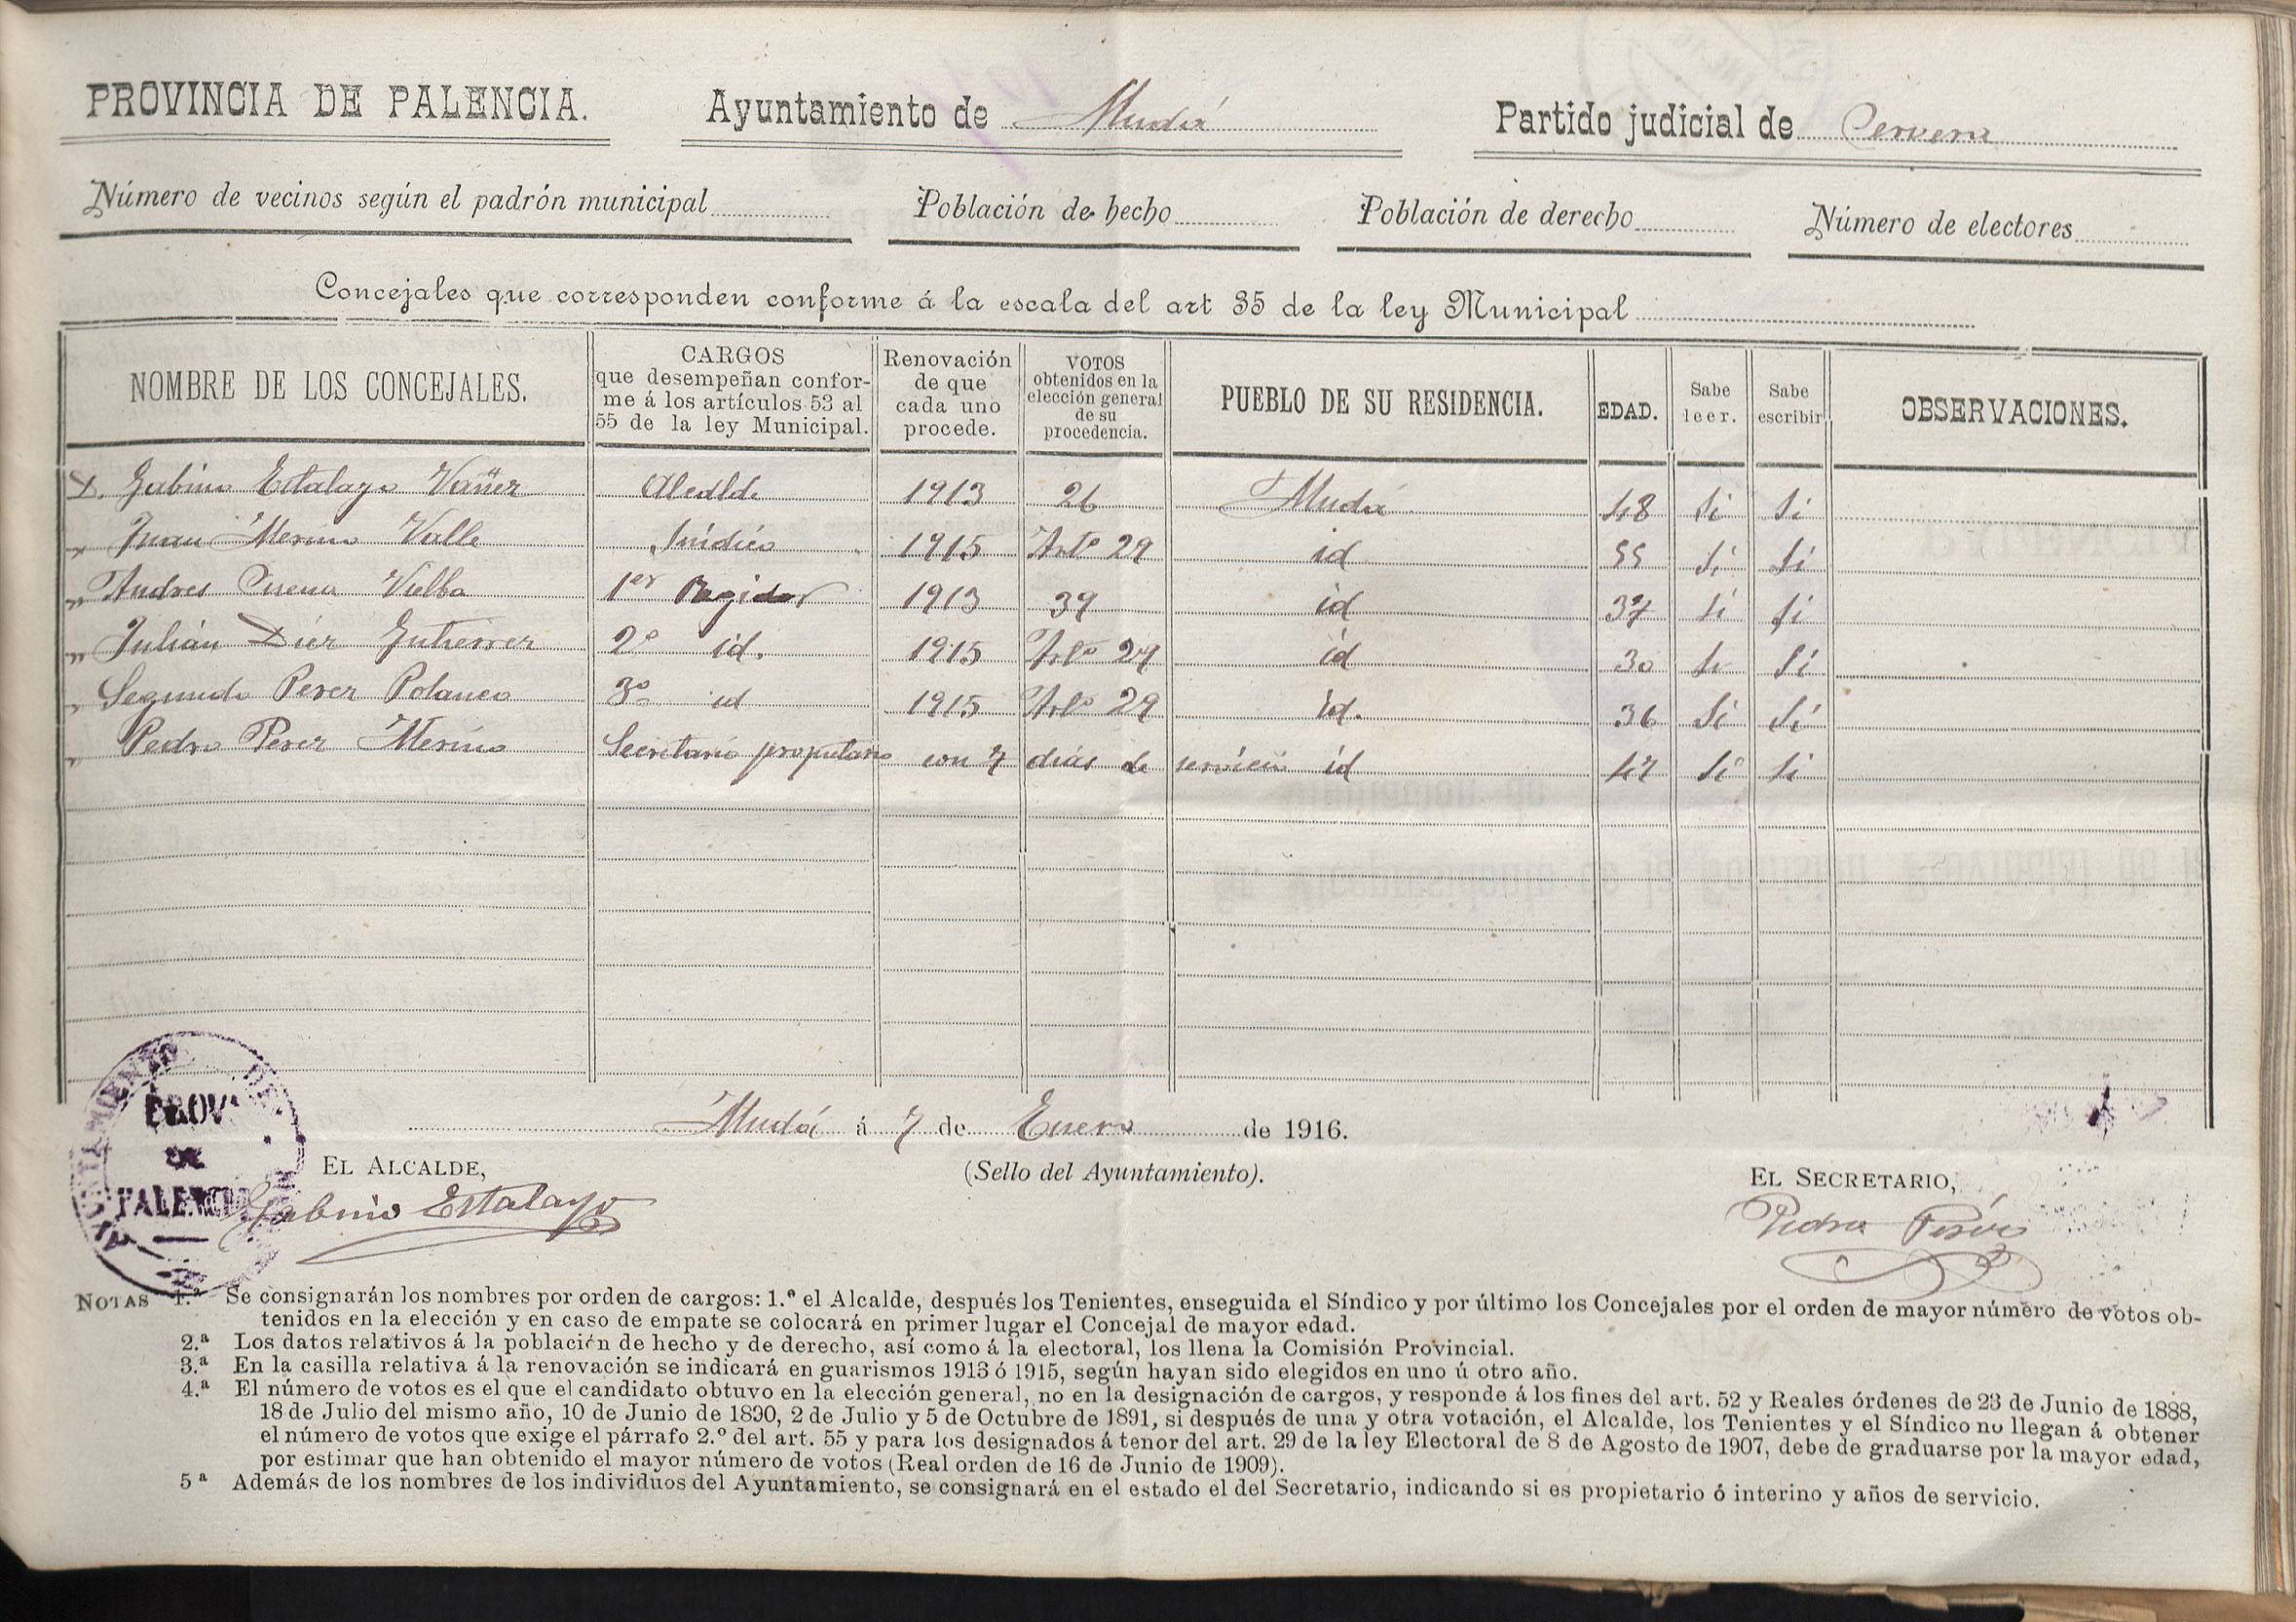 PROVINCIA DE PALENCIA. Ayuntamiento de Mudá Partido judicial de Cervera
Número de vecinos según el padrón municipal Población de hecho Población de derecho Número de electores
Concejales que corresponden conforme á la escala del art 35 de la ley Municipal
NOMBRE DE LOS CONCEJALES.
CARGOS
que desempeñan confor-
me á los artículos 53 al
55 de la ley Municipal.
Renovación
de que
cada uno
procede.
VOTOS
obtenidos en la
elección general
de su
procedencia.
PUEBLO DE SU RESIDENCIA.
EDAD.
Sabe
leer.
Sabe
escribir
OBSERVACIONES.
D. Gabino Estalayo Alcalde 1913 26 Mudá 48 Si Si
" Juan Merino Valle Síndico 1915 Artº 29 id 55 Si Si
" Andres Vielba 1er Regidor 1913 39 id 37 Si Si
" Julián Diez Gutierrez 2º id. 1915 Artº 29 id 30 Si Si
" Segundo Perez Polanco 3º id 1915 Artº 29 id. 36 Si Si
" Pedro Perez Merino Secretario propietario con 7 días de servicio id 47 Si Si
Mudá á 7 de Enero de 1916.
AYUNTAMIENTO DE
PROVª
DE
PALENCIA
EL ALCALDE,
(Sello del Ayuntamiento).
EL SECRETARIO,
Gabino Estalayo
Pedro Peréz
NOTAS 1.ª Se consignarán los nombres por orden de cargos: 1.º el Alcalde, después los Tenientes, enseguida el Síndico y por último los Concejales por el orden de mayor número de votos ob-
tenidos en la elección y en caso de empate se colocará en primer lugar el Concejal de mayor edad.
2.ª Los datos relativos á la población de hecho y de derecho, así como á la electoral, los llena la Comisión Provincial.
3.ª En la casilla relativa á la renovación se indicará en guarismos 1913 ó 1915, según hayan sido elegidos en uno ú otro año.
4.ª El número de votos es el que el candidato obtuvo en la elección general, no en la designación de cargos, y responde á los fines del art. 52 y Reales órdenes de 23 de Junio de 1888,
18 de Julio del mismo año, 10 de Junio de 1890, 2 de Julio y 5 de Octubre de 1891, si después de una y otra votación, el Alcalde, los Tenientes y el Síndico no llegan á obtener
el número de votos que exige el párrafo 2.º del art. 55 y para los designados á tenor del art. 29 de la ley Electoral de 8 de Agosto de 1907, debe de graduarse por la mayor edad,
por estimar que han obtenido el mayor número de votos (Real orden de 16 de Junio de 1909).
5ª Además de los nombres de los individuos del Ayuntamiento, se consignará en el estado el del Secretario, indicando si es propietario ó interino y años de servicio.